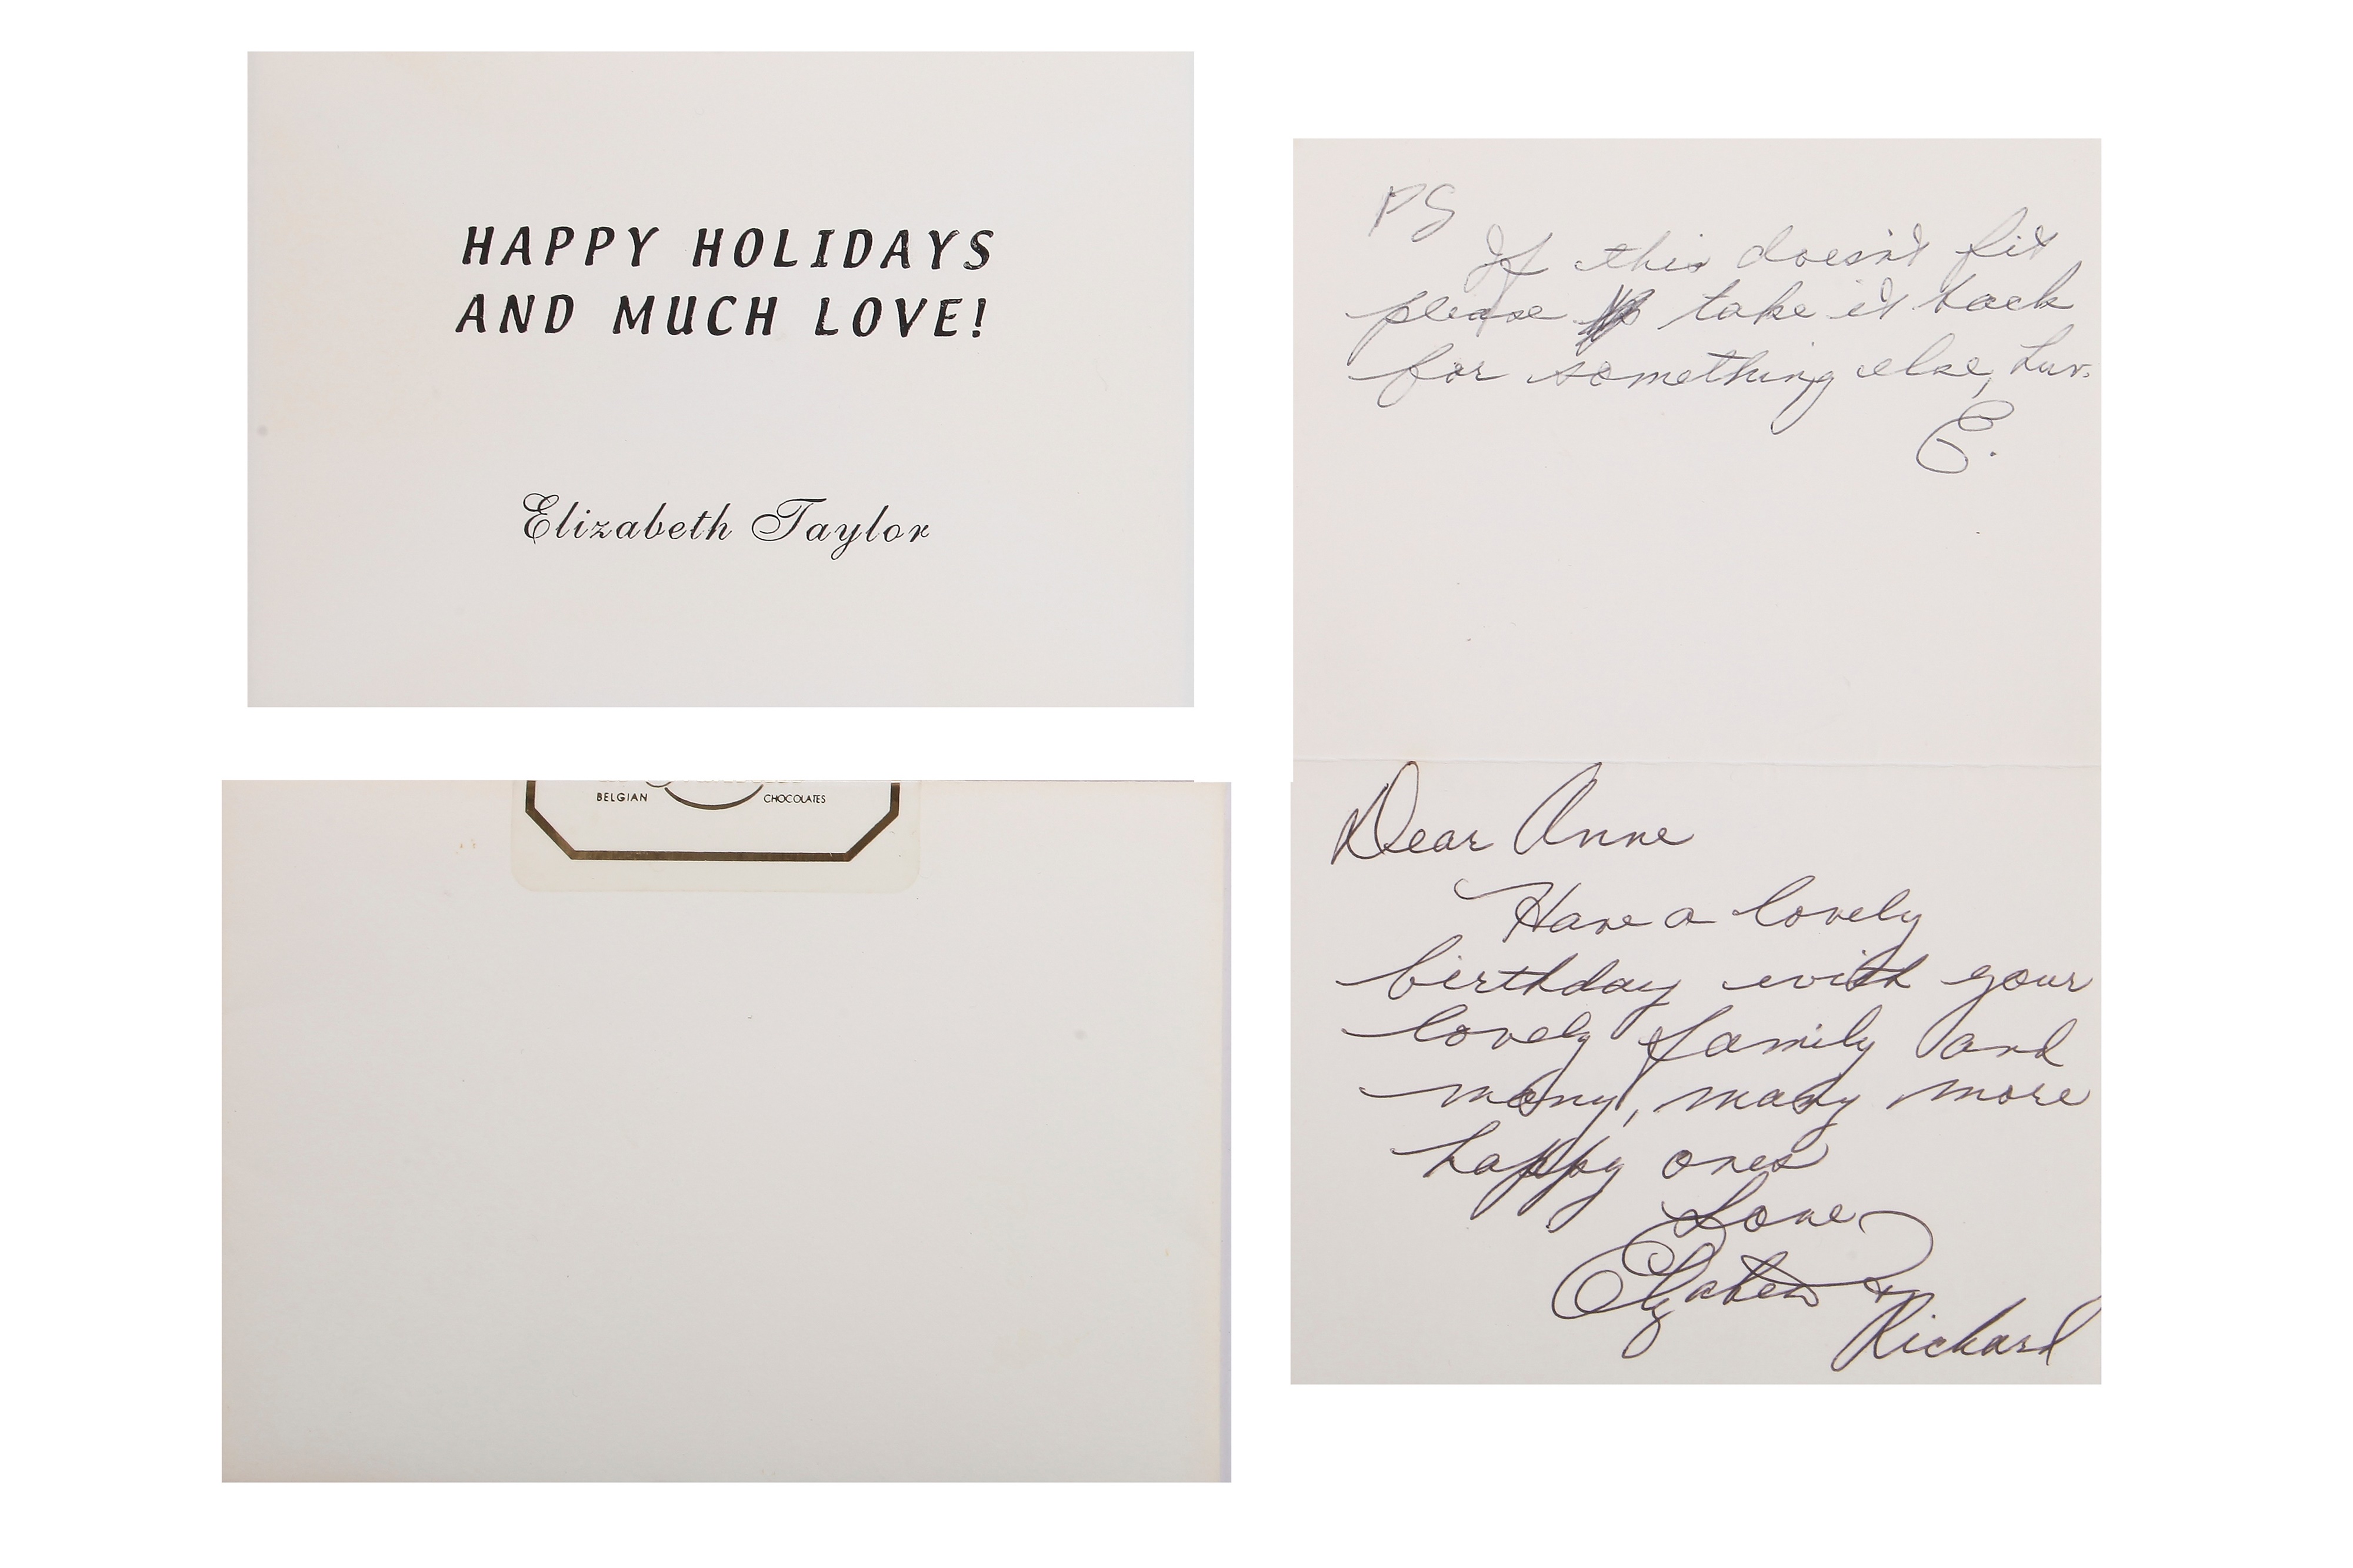 HAPPY HOLIDAYS
AND MUCH LOVE!
Elizabeth Taylor
BELGIAN CHOCOLATES
PS
If this doesn't fit
please take it back
for something else, Luv.
E.
Dear Anne
Have a lovely
birthday with your
lovely family and
many, many more
happy ones
Love
Elizabeth &
Richard